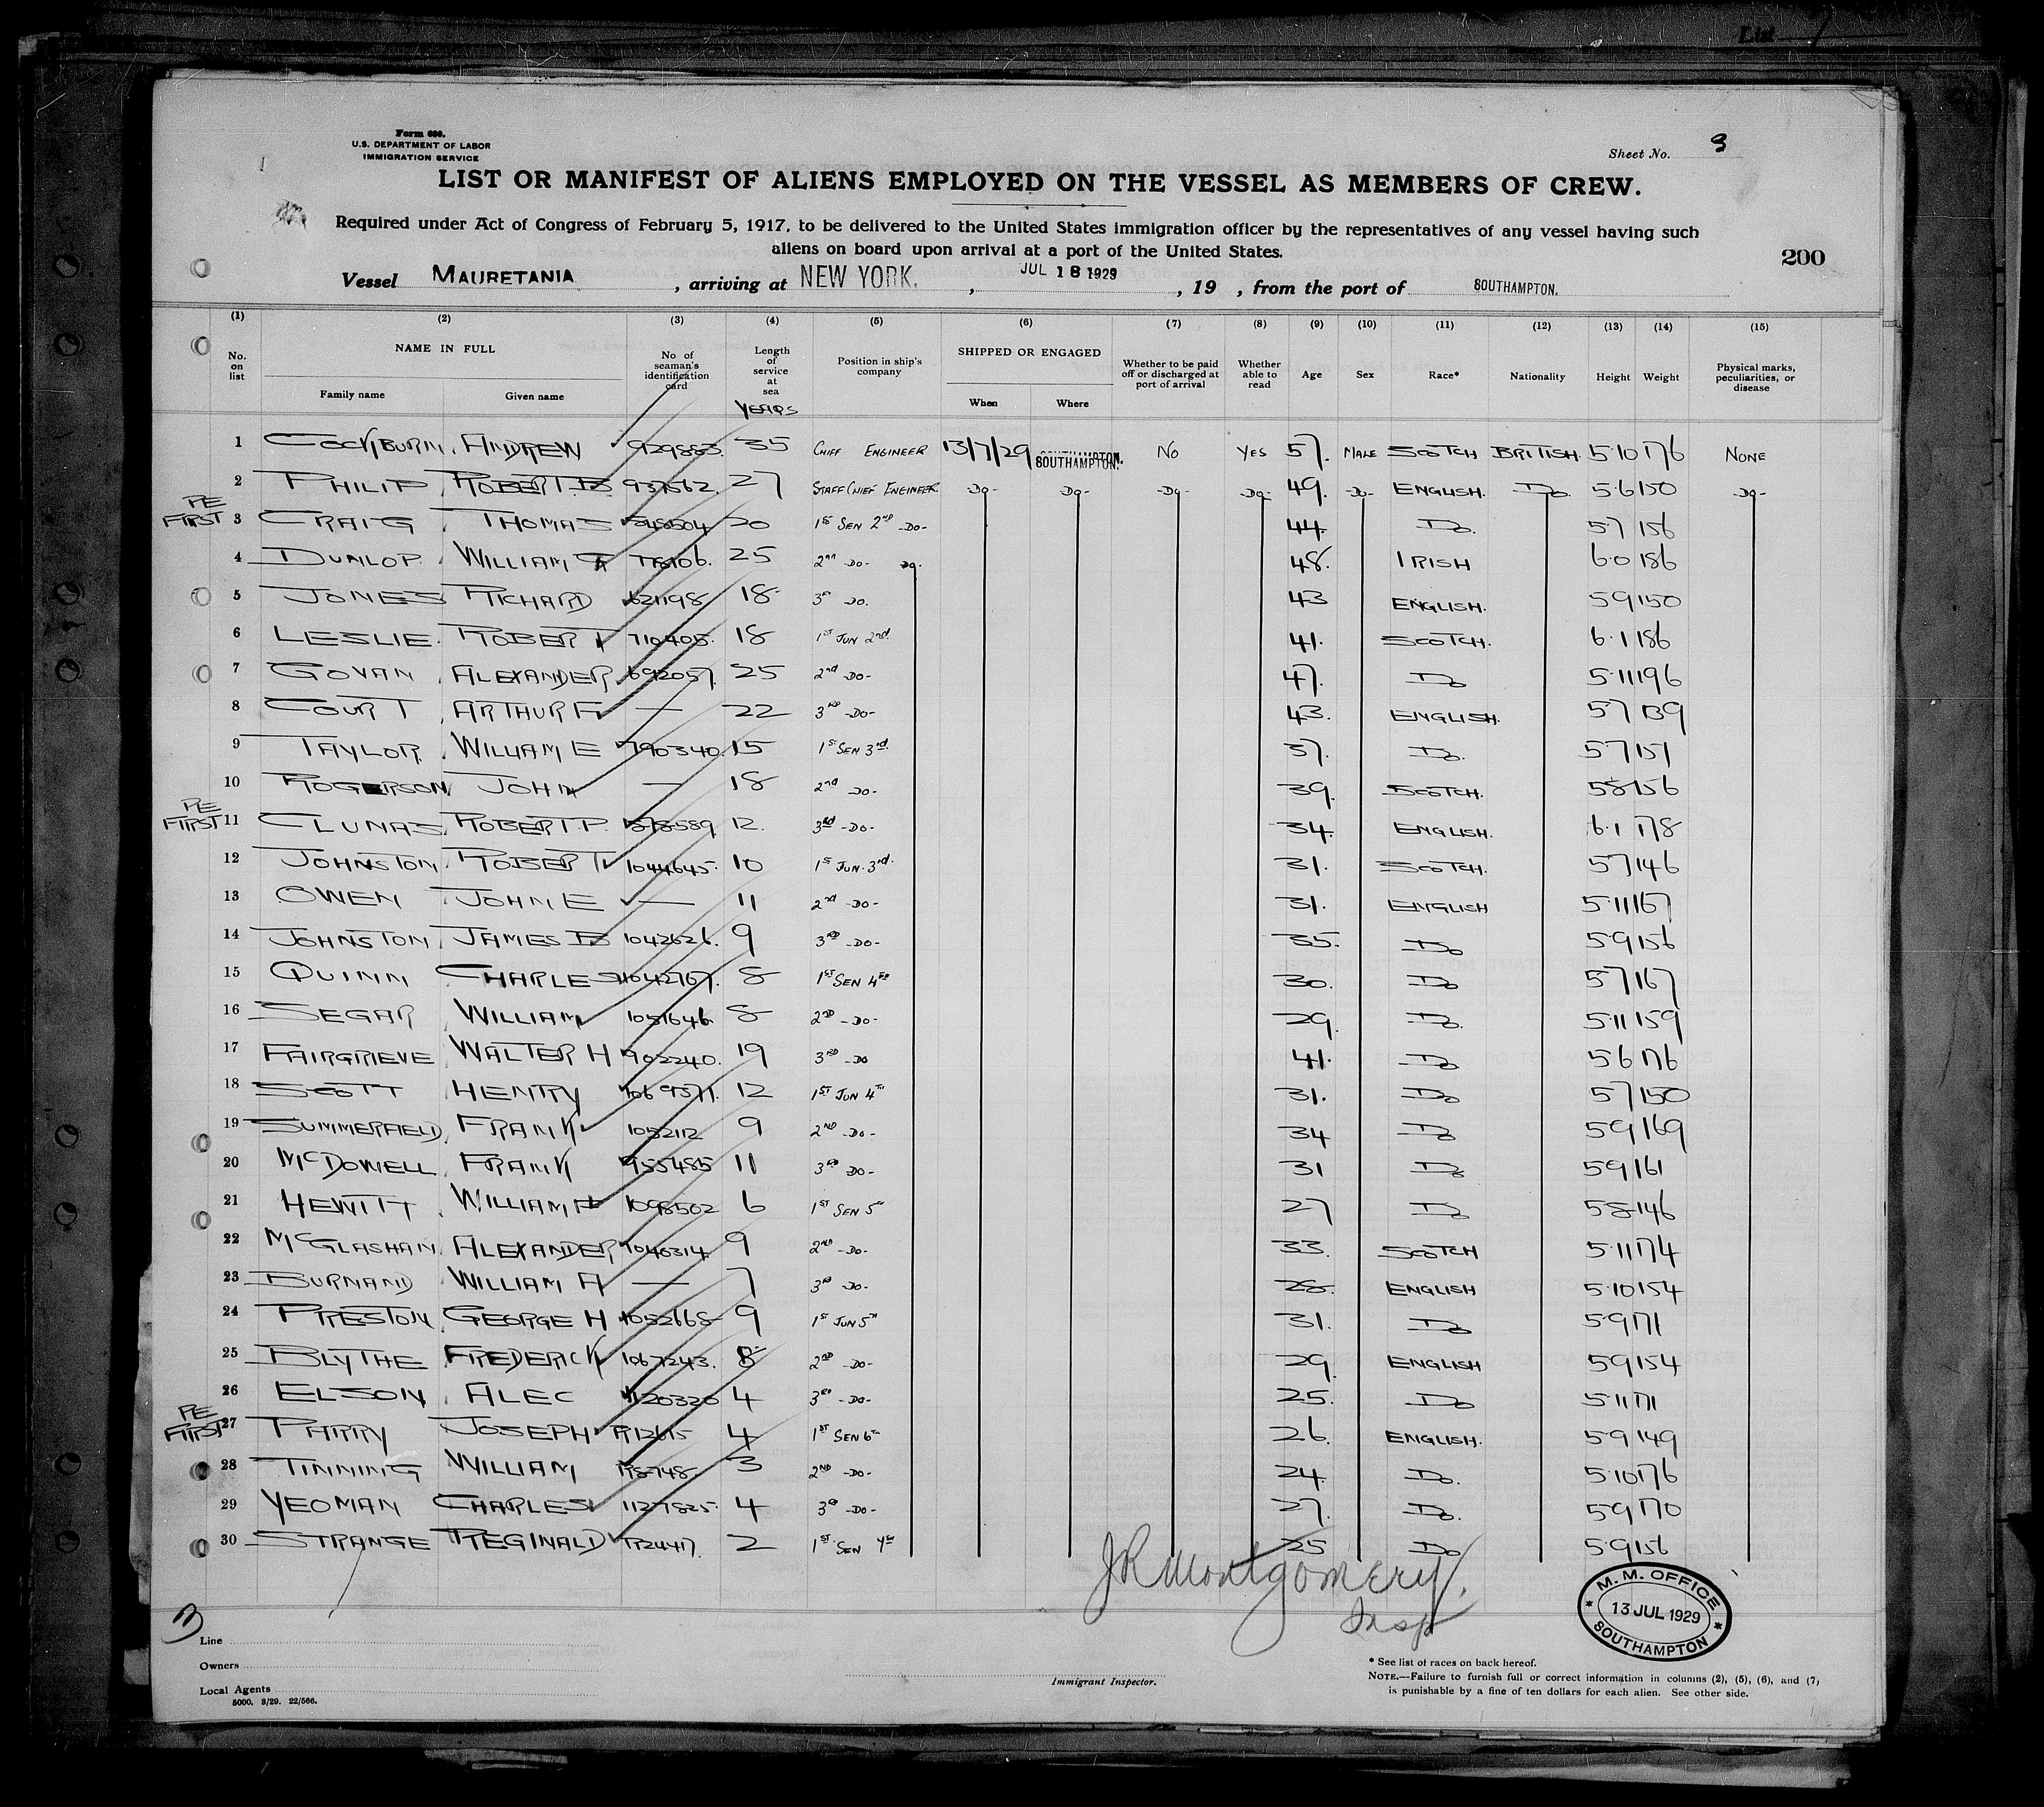 List
Form 680.
U.S. DEPARTMENT OF LABOR
IMMIGRATION SERVICE
Sheet No. 3
LIST OR MANIFEST OF ALIENS EMPLOYED ON THE VESSEL AS MEMBERS OF CREW.
Required under Act of Congress of February 5, 1917, to be delivered to the United States immigration officer by the representatives of any vessel having such
aliens on board upon arrival at a port of the United States.
200
Vessel MAURETANIA, arriving at NEW YORK., JUL 18 1929, 19 , from the port of SOUTHAMPTON.
(1) (2) (3) (4) (5) (6) (7) (8) (9) (10) (11) (12) (13) (14) (15)
No. on list NAME IN FULL Family name Given name No of seaman's identification card Length of service at sea YEARS Position in ship's company SHIPPED OR ENGAGED When Where Whether to be paid off or discharged at port of arrival Whether able to read Age Sex Race* Nationality Height Weight Physical marks, peculiarities, or disease
1 COCKBURN ANDREW 929883 35 CHIEF ENGINEER 13/7/29 SOUTHAMPTON. NO YES 57. MALE SCOTCH BRITISH. 5·10 176 NONE
2 PHILIP ROBERT B 937562. 27 STAFF CHIEF ENGINEER -DO- -DO- -DO- -DO- 49. -DO- ENGLISH. DO. 5·6 150 -DO-
PE FIRST 3 CRAIG THOMAS 20 1ST SEN 2ND -DO- 44. DO. 5·7 156
4 DUNLOP. WILLIAM 778106. 25 2ND -DO- DO. 48. IRISH 6·0 186
5 JONES RICHARD 621198 18 3D DO. 43 ENGLISH. 5·9 150
6 LESLIE. ROBERT 710405. 18 1ST JUN 2nd. 41. SCOTCH. 6·1 186
7 GOVAN ALEXANDER 692057. 25 2nd -DO- 47. DO 5·11 196
8 COURT ARTHUR F — 22 3RD -DO- 43. ENGLISH. 5·7 139
9 TAYLOR. WILLIAM E 790340. 15 1ST SEN 3rd. 37. DO. 5·7 151
10 ROGERSON JOHN — 18 2nd DO- 39. SCOTCH. 5·8 156
PE FIRST 11 CLUNAS. ROBERT P. 12. 3rd -DO- 34. ENGLISH. 6·1 178
12 JOHNSTON ROBERT 1044645. 10 1ST JUN. 3rd. 31. SCOTCH. 5·7 146
13 OWEN JOHN E — 11 2nd -DO- 31. ENGLISH 5·11 167
14 JOHNSTON JAMES B 1042626. 9 3RD -DO- 35. DO 5·9 156
15 QUINN CHARLES 1042767. 8 1ST SEN 4TH 30. DO 5·7 167
16 SEGAR WILLIAM 1051646 8 2ND -DO- 29. DO. 5·11 159
17 FAIRGRIEVE WALTER H 902240. 19 3RD -DO 41. DO 5·6 176
18 SCOTT HENRY 1069571. 12 1ST JUN 4TH 31. DO 5·7 150
19 SUMMERFIELD FRANK 1052112 9 2ND -DO- 34 DO 5·9 169
20 MCDOWELL FRANK 955485 11 3RD -DO- 31 DO 5·9 161
21 HEWITT WILLIAM 1098502 6 1ST SEN 5TH 27 DO 5·8 146
22 MCGLASHAN ALEXANDER 1040314 9 2ND -DO- 33. SCOTCH 5·11 174
23 BURNAND WILLIAM A — 7 3RD -DO- 28. ENGLISH 5·10 154
24 PRESTON GEORGE H 1052668 9 1ST JUN 5TH 31. DO 5·9 171
25 BLYTHE FREDERICK 1067243. 8 2ND -DO- 29. ENGLISH 5·9 154
26 ELSON ALEC 1120320 4 3RD -DO- 25. DO 5·11 171
PE FIRST 27 PARRY JOSEPH R12615 4 1ST SEN 6TH 26. ENGLISH. 5·9 149
28 TINNING WILLIAM 3 2ND -DO- 24. DO. 5·10 176
29 YEOMAN CHARLES 1127825. 4 3RD -DO- 27. DO. 5·9 170
30 STRANGE REGINALD R24417. 2 1ST SEN 25 DO 5·9 156
JR Montgomery.
Insp
M. M. OFFICE
13 JUL 1929
SOUTHAMPTON
3
Line
Owners
Local Agents
5000. 3/29. 22/566.
Immigrant Inspector.
* See list of races on back hereof.
NOTE.—Failure to furnish full or correct information in columns (2), (5), (6), and (7)
is punishable by a fine of ten dollars for each alien. See other side.